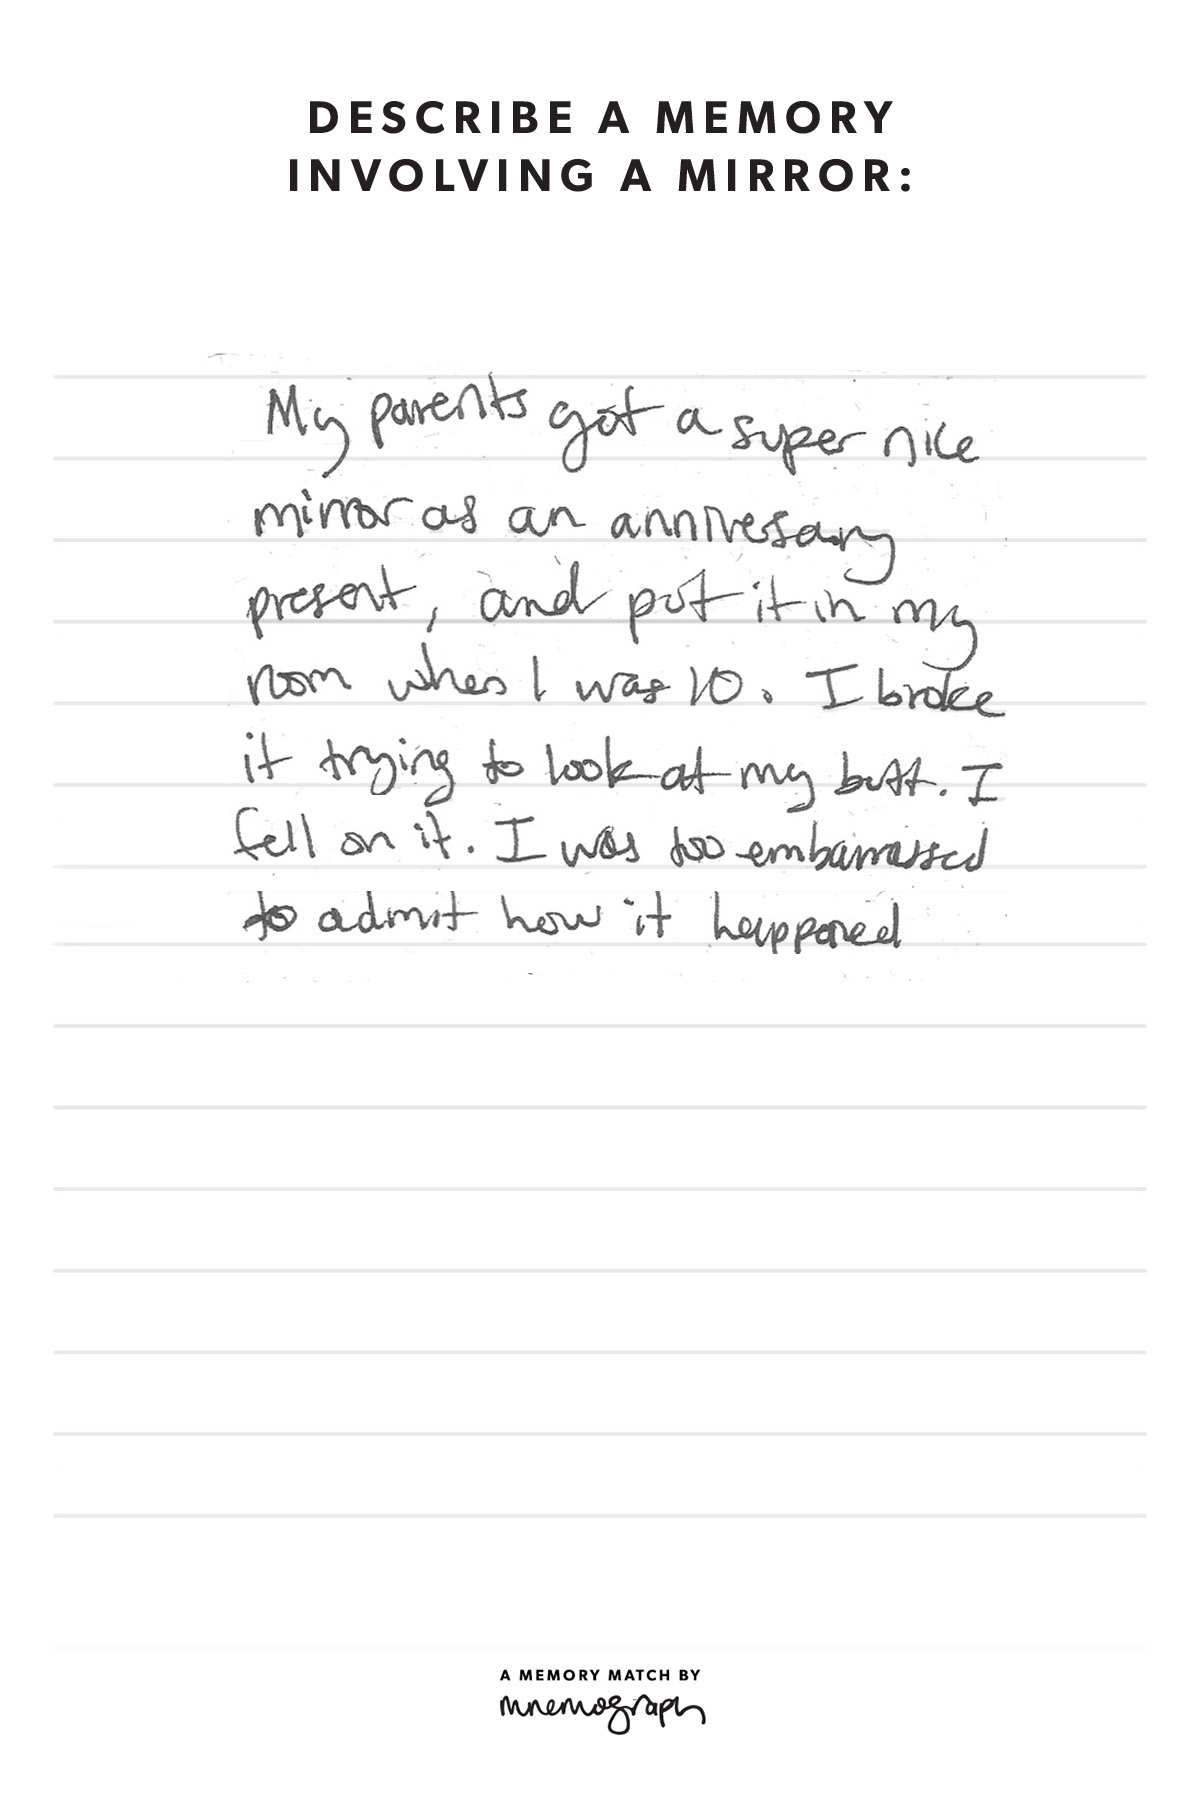 DESCRIBE A MEMORY
INVOLVING A MIRROR:
My parents got a super nice
mirror as an anniversary
present, and put it in my
room when I was 10. I broke
it trying to look at my butt. I
fell on it. I was too embarrassed
to admit how it happened
A MEMORY MATCH BY
mnemograph